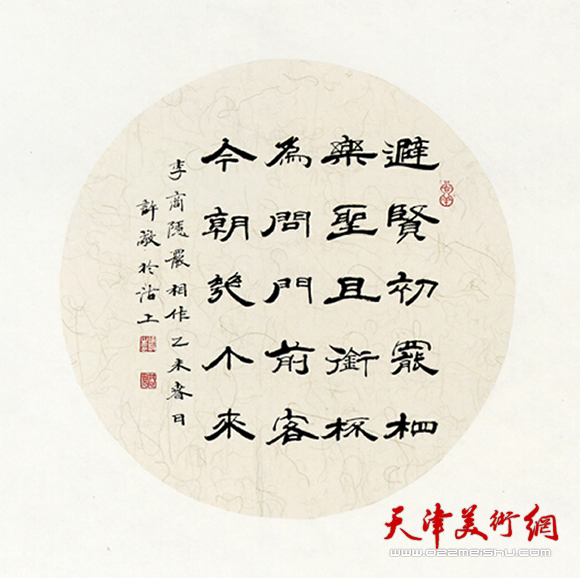 避賢初罷相
樂聖且銜杯
為問門前客
今朝幾个來
李商隱罷相作乙未春月
許敬於沽上
天津美術網
www.022meishu.com